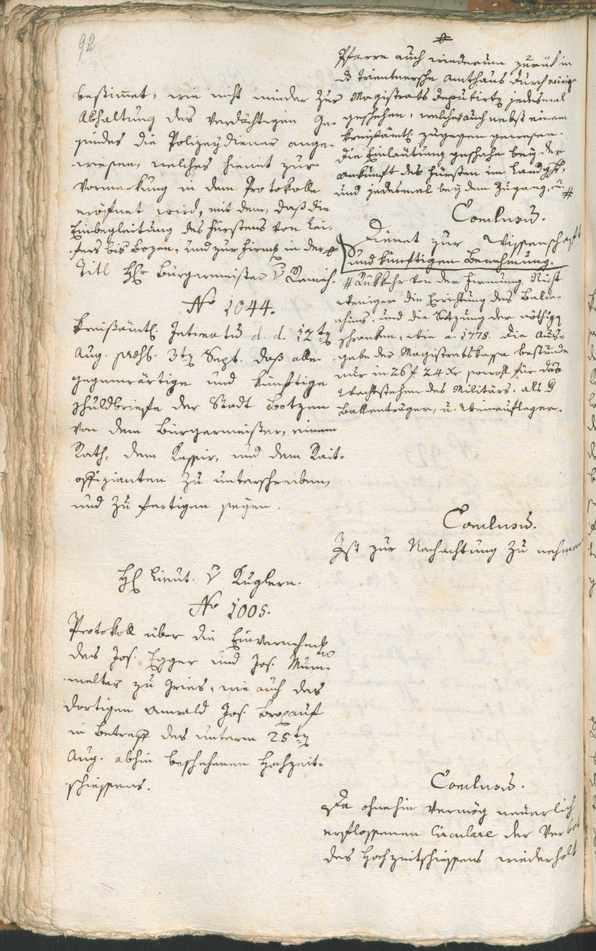 92
bestimmt, wie nicht minder zur
Abhaltung des verdächtigen Ge-
sindes die Polizeydiener ange-
wiesen, welches hiemit zur
Vormerkung in dem Protokolle
eröfnet wird, mit dem, daß die
Einbegleitung des Fürsten von Lei-
fers bis Bozen, und zur Firmung in der #
Titl Hr Burgermeister v Remich.
No 1044.
Kreisämtl. Intimatum d. d. 12ten
Aug. praes. 3ten Sept. daß alle
gegenwärtige und künftige
Schuldbriefe der Stadt Botzen
von dem Burgermeister, einem
Rath, dem Kassier, und dem Rait-
offizianten zu unterschreiben,
und zu fertigen seyen.
Hr Lieut. v Kuglern.
No 1005.
Protokoll über die Einvernehmung
des Jos. Egger und Jos. Mum-
melter zu Gries, wie auch des
dortigen Anwald Jos.
in Betreff des unterm 25ten
Aug. abhin beschehenen Hochzeit-
schiessens.
#
Pfarre auch wiederum zurück in
das Trientnersche Amthaus durch einige
Magistrats deputirte jedesmal
geschehen, welches auch nebst einem
Kreisamtl. zugegen gewesen.
Die Einläutung geschahe bey der
Ankunft des Fürsten im Landgut,
und jedesmal bey dem Zugang, u #
Conclusum.
Dienet zur Wissenschaft
und künftigen Benehmung.
# Rückkehr von der Firmung. Nicht
weniger die Errichtung des Balda-
chins, und die Setzung der nöthigen
Schranken, wie a. 1778. Die Aus-
gabe der Magistratskasse bestunde
nur in 26 f 24 xr sowohl für das
Wachtstehen des Militärs, als d
Ballenträger, u. Weinaufleger.
Conclusum.
Ist zur Nachachtung zu nehmen
Conclusum.
Da ohnehin vermög neuerlich
erflossenen Circulare der Verbot
des Hochzeitschiessens wiederholt